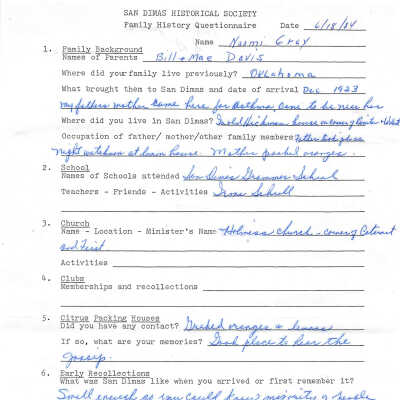 SAN DIMAS HISTORICAL SOCIETY
Family History Questionnaire Date 6/18/84
Name Naomi Gray
1. Family Background
Names of Parents Bill & Mae Davis
Where did your family live previously? Oklahoma
What brought them to San Dimas and date of arrival Dec 1923
my fathers mother came here for asthma, came to be near her
Where did you live in San Dimas? In old house corner of &
Occupation of father/ mother/other family members Father
Night watchman at house. Mother packed oranges.
2. School
Names of Schools attended San Dimas Grammar School
Teachers - Friends - Activities Irma Schull
3. Church
Name - Location - Minister's Name Holiness Church - corner of Cataract
and First
Activities
4. Clubs
Memberships and recollections
5. Citrus Packing Houses
Did you have any contact? Graded oranges & lemons
If so, what are your memories? Good place to hear the
gossip.
6. Early Recollections
What was San Dimas like when you arrived or first remember it?
Small enough so you could know majority of people